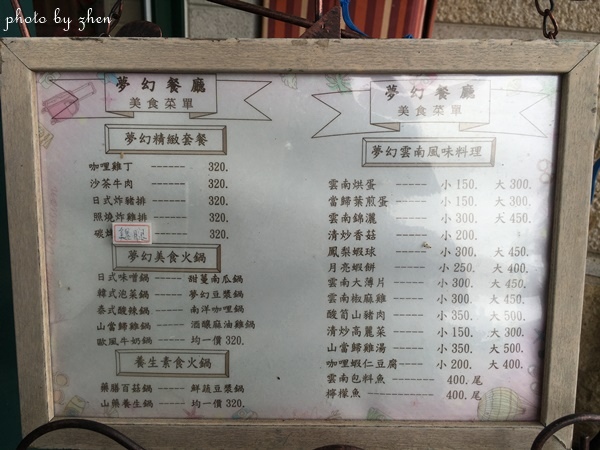 photo by zhen
夢幻餐廳
美食菜單
夢幻精緻套餐
咖哩雞丁 ------ 320.
沙茶牛肉 ------ 320.
日式炸豬排 ------ 320.
照燒炸雞排 ------ 320.
碳烤 320.
夢幻美食火鍋
日式味噌鍋 ------ 甜蔓南瓜鍋
韓式泡菜鍋 ------ 夢幻豆漿鍋
泰式酸辣鍋 ------ 南洋咖哩鍋
山當歸雞鍋 ------ 酒釀麻油雞鍋
歐風牛奶鍋 ------ 均一價320.
養生素食火鍋
藥膳百菇鍋 ------ 鮮蔬豆漿鍋
山藥養生鍋 ------ 均一價 320.
夢幻餐廳
美食菜單
夢幻雲南風味料理
雲南烘蛋 ------ 小 150. 大 300.
當歸葉煎蛋 ------ 小 150. 大 300.
雲南錦灑 ------ 小 300. 大 450.
清炒香菇 ------ 小 200.
鳳梨蝦球 ------ 小 300. 大 450.
月亮蝦餅 ------ 小 250. 大 400.
雲南大薄片 ------ 小 300. 大 450.
雲南椒麻雞 ------ 小 300. 大 450.
酸筍山豬肉 ------ 小 350. 大 500.
清炒高麗菜 ------ 小 150. 大 300.
山當歸雞湯 ------ 小 350. 大 500.
咖哩蝦仁豆腐 ------ 小 200. 大 400.
雲南包料魚 ------ 400. 尾
檸檬魚 ------ 400. 尾